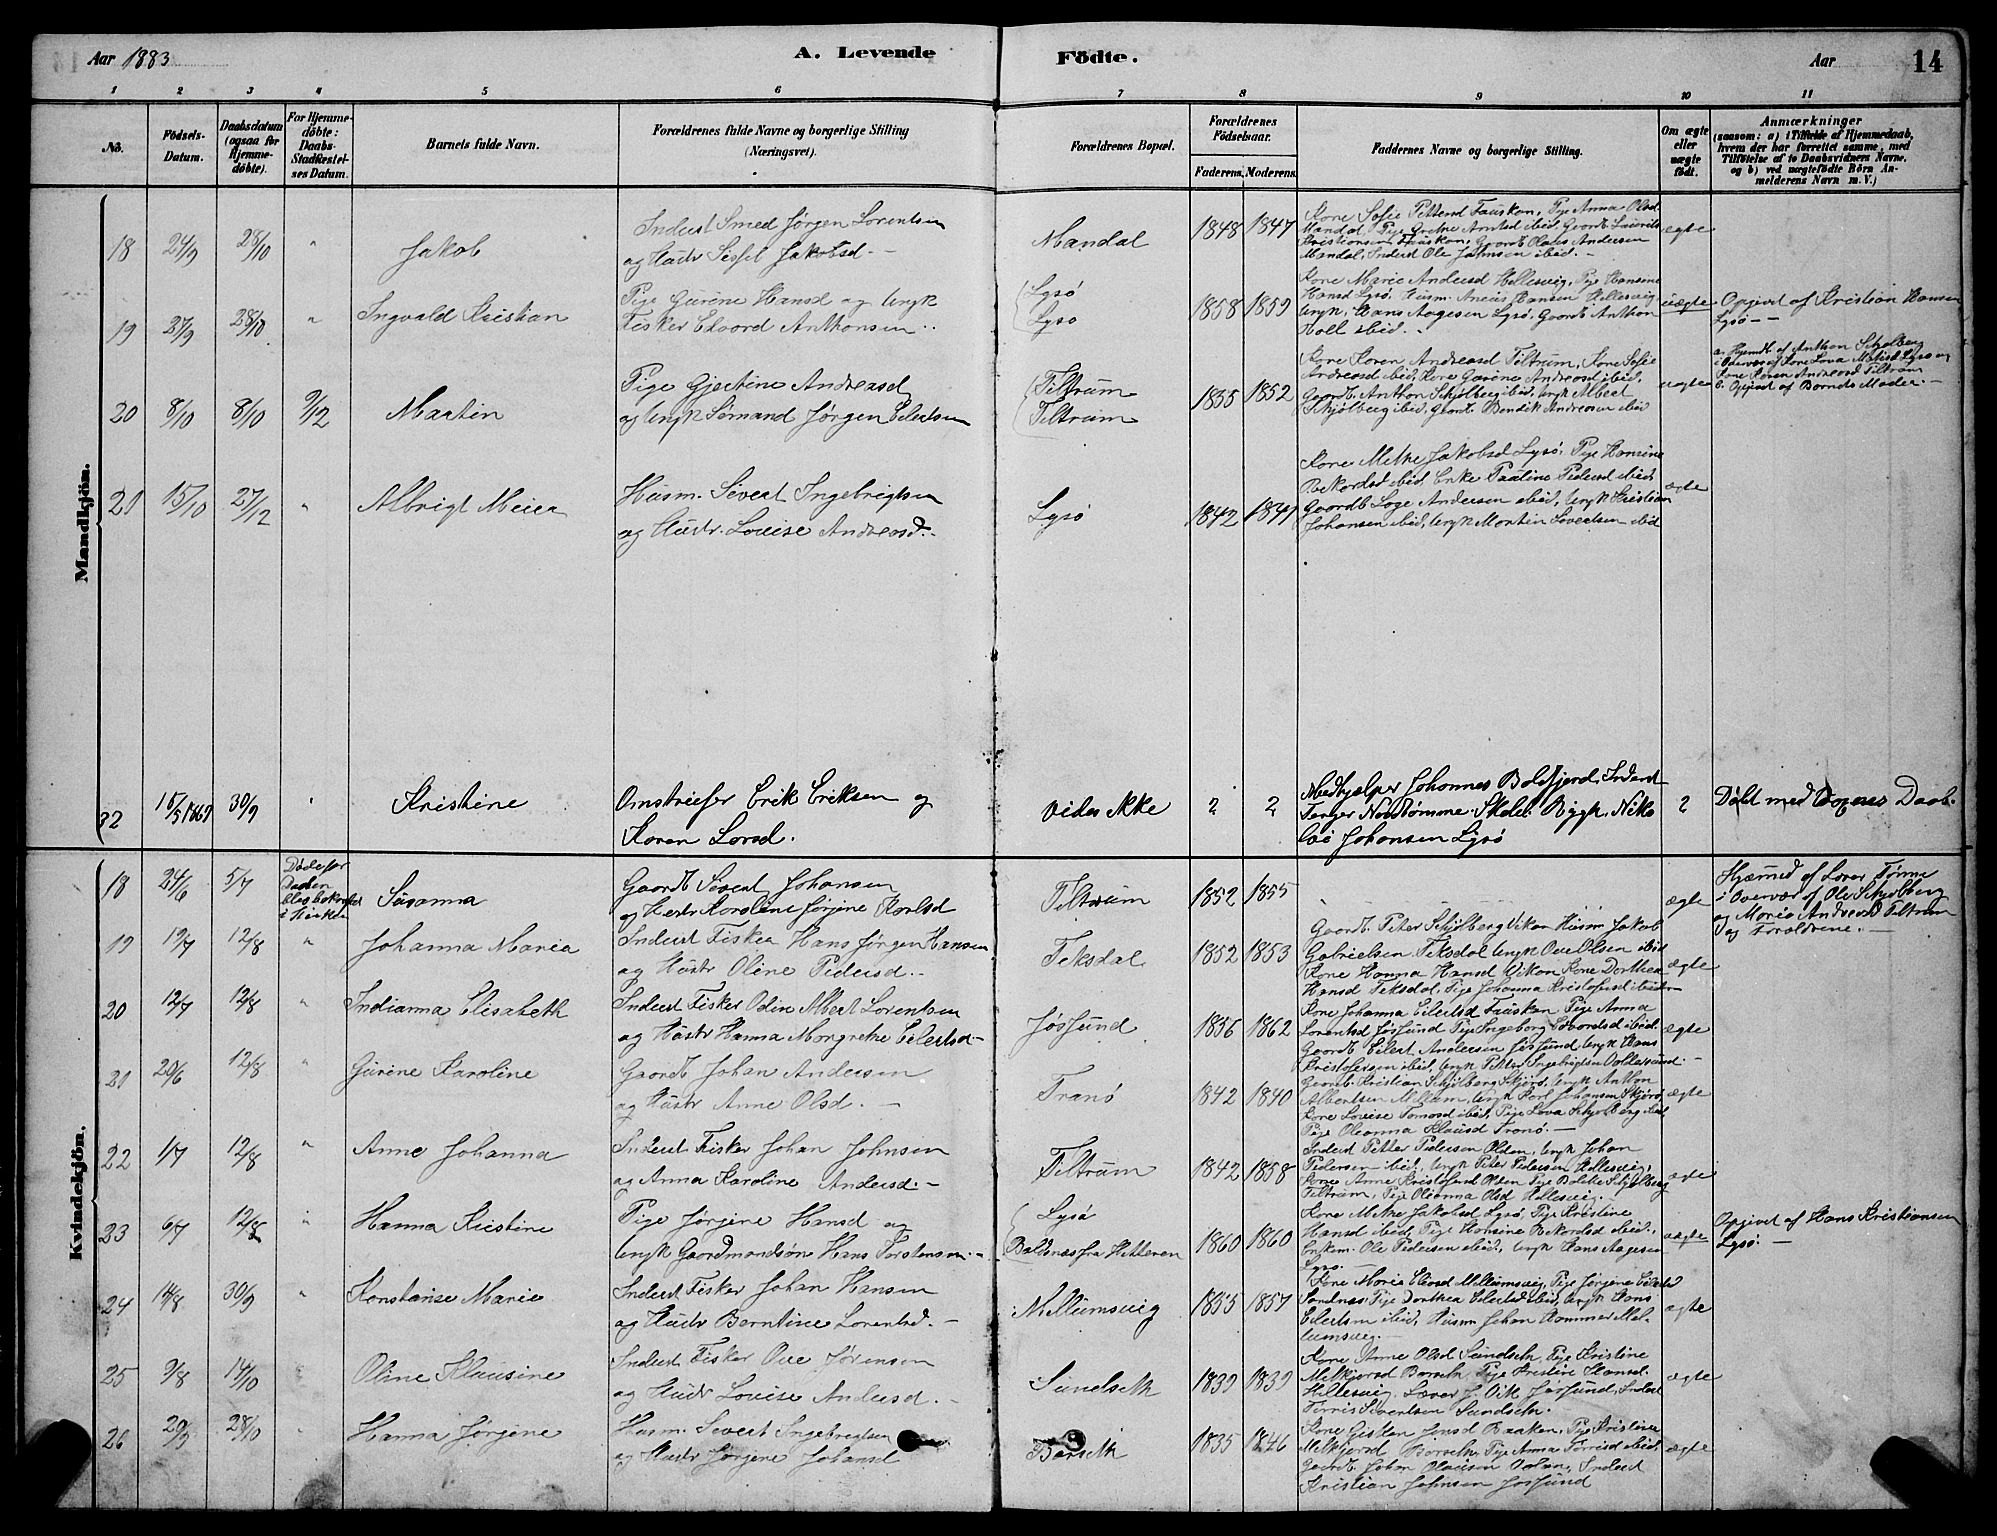 Aar 1883
A. Levende Födte.
Aar
14
1 2 3 4 5 6 7 8 9 10 11
No.
Födsels-Datum.
Daabsdatum (ogsaa for Hjemme-döbte).
For Hjemme-döbte: Daabs-Stadfæstel-ses Datum.
Barnets fulde Navn.
Forældrenes fulde Navne og borgerlige Stilling (Næringsvei).
Forældrenes Bopæl.
Forældrenes Födselsaar.
Faderens. Moderens.
Faddernes Navne og borgerlige Stilling.
Om ægte eller uægte födt.
Anmærkninger
(saasom: a) i Tilfælde af Hjemmedaab, hvem der har forrettet samme, med Tilföielse af to Daabsvidners Navne, og b) ved uægtefödte Börn An-melderens Navn m. V.)
Mandkjön.
18 24/9 28/10 " Jakob
Inderst Smed Jørgen Lorentsen
og Hustr Sissel Jakobsd.-
Mandal 1848 1847
Kone Sofie Pettersd Fauskon, Pige Anna Olsd
Mandal, Pige Grethe Arntsd ibid, Gaardb Laurits
Kristiansen Fauskon, Gaardb Olaus Andersen
Mandal, Inderst Ole Johnsen ibid.-
ægte
19 27/9 28/10 " Ingvald Kristian
Pige Gurine Hansd og Ungk
Fisker Edvard Anthonsen..
Lysø
Lysø
1858 1859
Kone Marie Andersd Hellesvig, Pige Hansine
Hansd Lysø, Husm. Hansen Hellesvig
Ungk. Hans Aagesen Lysø, Gaardb Anthon
Holl ibid.-
uægte
Opgivet af Kristian Hansen
Lysø--
20 8/10 8/10 9/12 Martin
Pige Gjertine Andreasd
og Ungk Sømand Jørgen Eilertsen
Tiltrum
Tiltrum
1855 1852
Kone Karen Andreasd Tiltrum, Kone Sofie
Andreasd ibid, Kone Gurine Andreasd ibid,
Gaardb. Anthon Schjølberg ibid, Ungk Albert
Schjølberg ibid, Gaardb. Bendik Andreasen ibid
uægte
a. Hjemdt. af Anthon Schjølberg
i Overvær af Kone Lova Lysø og
Kone Karen Andreasd Tiltrum
b. Opgivet af Barnets Moder.-
21 15/10 27/12 " Albrigt Meier
Husm. Sivert Ingebrigtsen
og Hustr. Louise Andreasd.-
Lysø 1842 1841
Kone Methe Jakobsd Lysø, Pige Hansine
Rekordsd ibid, Enke Pauline Pedersd ibid,
Gaardb Loge Andersen ibid, Ungk Kristian
Johansen ibid, Ungk Martin Sivertsen ibid
ægte
15/5 1869 30/9 " Kristine
Omstreifer Erik Eriksen og
Karen Larsd.
vides ikke 2 2
Medhjælper Johannes Bolefjord, Inderst
Torger Nordtømme Skolel. Rygh, Niko
lai Johansen Lysø
2
Døbt med Daab.
Kvindekjön.
18 24/6 5/7
Døde før
Daaben
blev bekræftet
i Kirken
Susanna
Gaardb Sivert Johansen
og Hustr Karoline Jørgine Karlsd
Tiltrum 1852 1855
ægte
Hjemmed af Lærer Tønne
i Overvær af Ole Schjølberg
og Maria Andreasd Tiltrum
og Forældrene.-
19 19/7 12/8 " Johanna Maria
Inderst Fisker Hans Jørgen Hansen
og Hustr Oline Pedersd..
Teksdal 1852 1853
Gaardb. Peter Schjølberg Viken Husm. Jakob
Gabrielsen Teksdal Ungk Ove Olsen ibid
Kone Hanna Hansd Viken Kone Dorthea
Hansd Teksdal. Pige Johanna Kristofersd ibid
ægte
20 12/7 12/8 " Indianna Elisabeth
Inderst Fisker Odin Albert Lorentsen
og Hustr Hanna Margrethe Eilertsd.-
Jøssund 1856 1862
Kone Johanna Eilertsd Fausken Pige Anna
Lorentsd Jøssund Pige Ingeborg Edvardsd ibid.
Gaardb. Eilert Andersen Jøssund, Ungk Hans
Kristofersen ibid, Ungk Petter Ingebrigtsen
ægte
21 20/6 12/8 " Gurine Karoline
Gaardb Johan Andersen
og Hustr Anne Olsd.-
Tranø 1842 1840
Gaardb. Kristian Schjølberg Skjørø, Ungk Anthon
Albertsen Mellum, Ungk Karl Johansen Skjørø,
Kone Louise Tomasd ibid, Pige Lova Schjølberg ibid
Pige Oleanna Klausd Tranø.-
ægte
22 1/7 12/8 " Anne Johanna
Inderst Fisker Johan Johnsen
og Anna Karoline Andersd.-
Tiltrum 1842 1858
Inderst Petter Pedersen Olden, Ungk Johan
Pedersen ibid, Ungk Peter Pedersen Hellesvig,
Kone Anne Kristofersd Olden Pige Bolette Schjølberg
Tiltrum, Pige Oleanna Olsd Hellesvig.
ægte
23 6/7 12/8 " Hanna Kristine
Pige Jørgine Hansd og
Ungk Gaardmandssøn Hans Torstensen.-
Lysø
Baldsnes fra Hitteren
1860 1860
Kone Methe Jakobsd Lysø, Pige Kristine
Hansd ibid, Pige Hansine Rekordsd ibid,
Enkem. Ole Pedersen ibid, Ungk Hans Aagesen
Lysø.-
uægte
Opgivet af Hans Kristiansen
Lysø.-
24 14/8 30/9 " Konstanse Marie
Inderst Fisker Johan Hansen
og Hustr Berntine Lorentsd.-
Mellumsvig 1855 1857
Kone Maria Mellumsvig, Pige Jørgine Eilertsd
Sandnes, Pige Dorthea Eilertsd ibid, Ungk Hans
Eilertsen ibid, Husm Johan Hammer Mel-
lumsvig.-
ægte
25 9/8 14/10 Oline Klausine
Inderst Fisker Ove Sørensen
og Hustr Lovise Andersd.-
Sundseth 1839 1839
Kone Anne Olsd Sundseth, Pige Kristine
Melkjorsd Borseth, Pige Kristine Hansd
Hellesvig. Lærer J. Vik Jøssund, Inderst
Torris Sivertsen Sundseth.-
ægte
26 29/9 28/10 Hanna Jørgine
Husm. Sivert Ingebrigtsen
og Hustr Jørgine Johansd
Borseth 1835 1846
Kone Gisken Jensd Braken, Pige Kristine
Melkjorsd Borseth, Pige Anna Torrisd ibid,
Gaardb. Johan Olausen, Inderst
Kristian Johnsen Jøssund
ægte